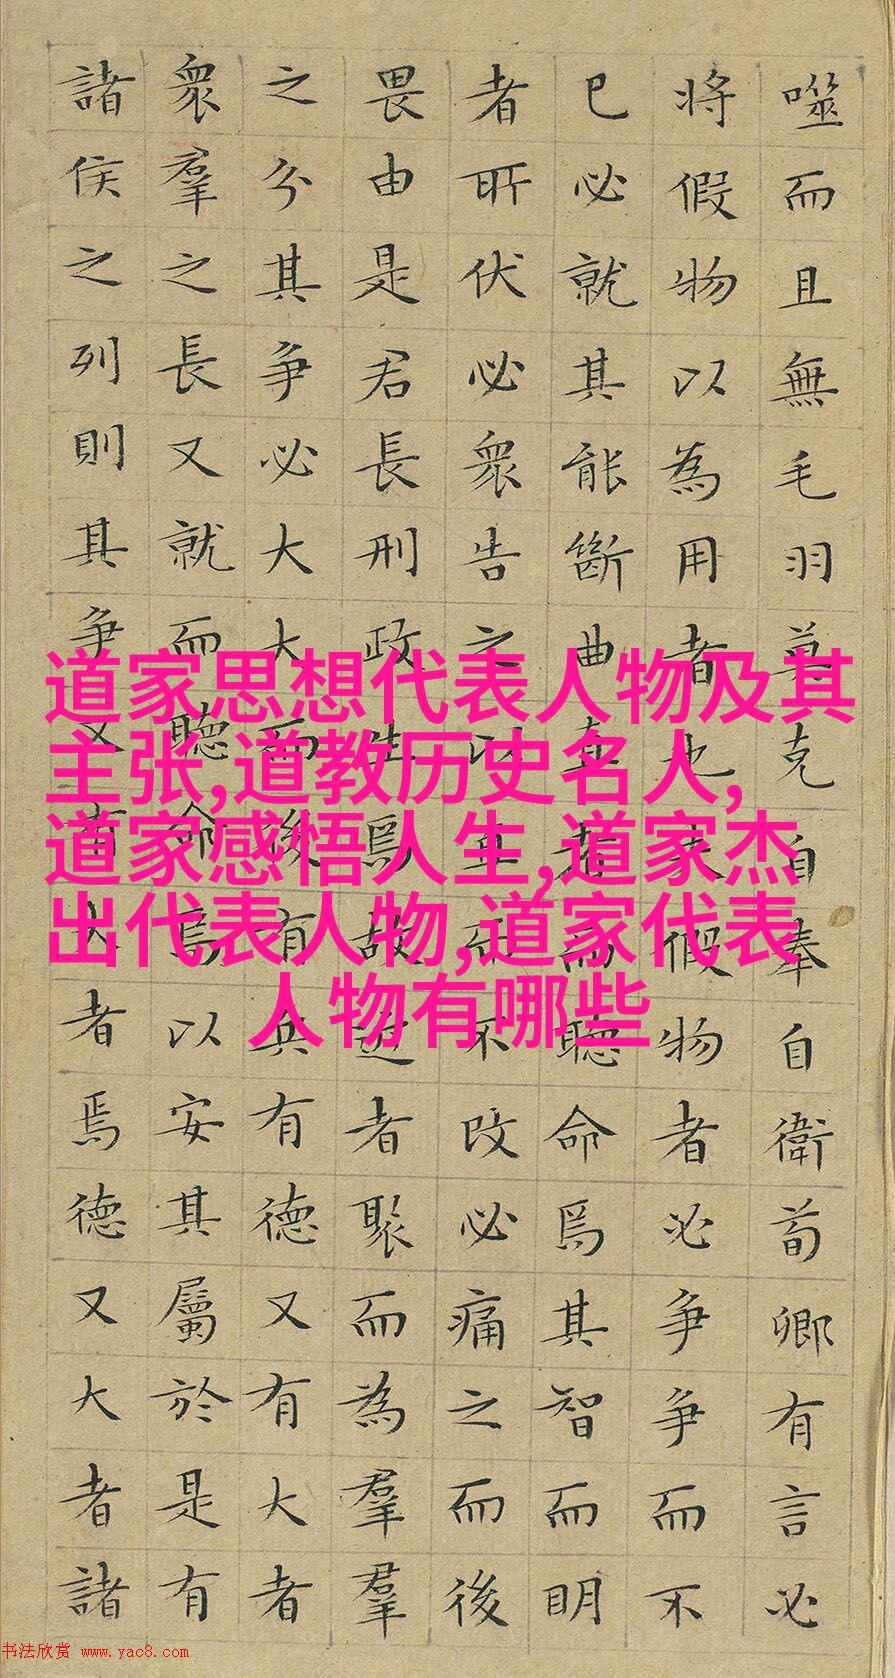 噬而且無毛羽莫克自奉自衛荀卿有言必
将假物以為用者也夫假物者必争争而不
已必就其能斷曲直者而聽命焉其智而明
者所伏必衆告之以直而不改必痛之而後
畏由是君長刑政生焉故近者聚而為羣羣
之分其争必大大而後有兵有德又有大者
衆羣之長又就而聽命焉以安其屬於是有
諸侯之列則其争又有大者焉德又大者諸
道家思想代表人物及其
主张,道教历史名人,
道家感悟人生,道家杰
出代表人物,道家代表
人物有哪些
书法欣赏 www.yac8.com